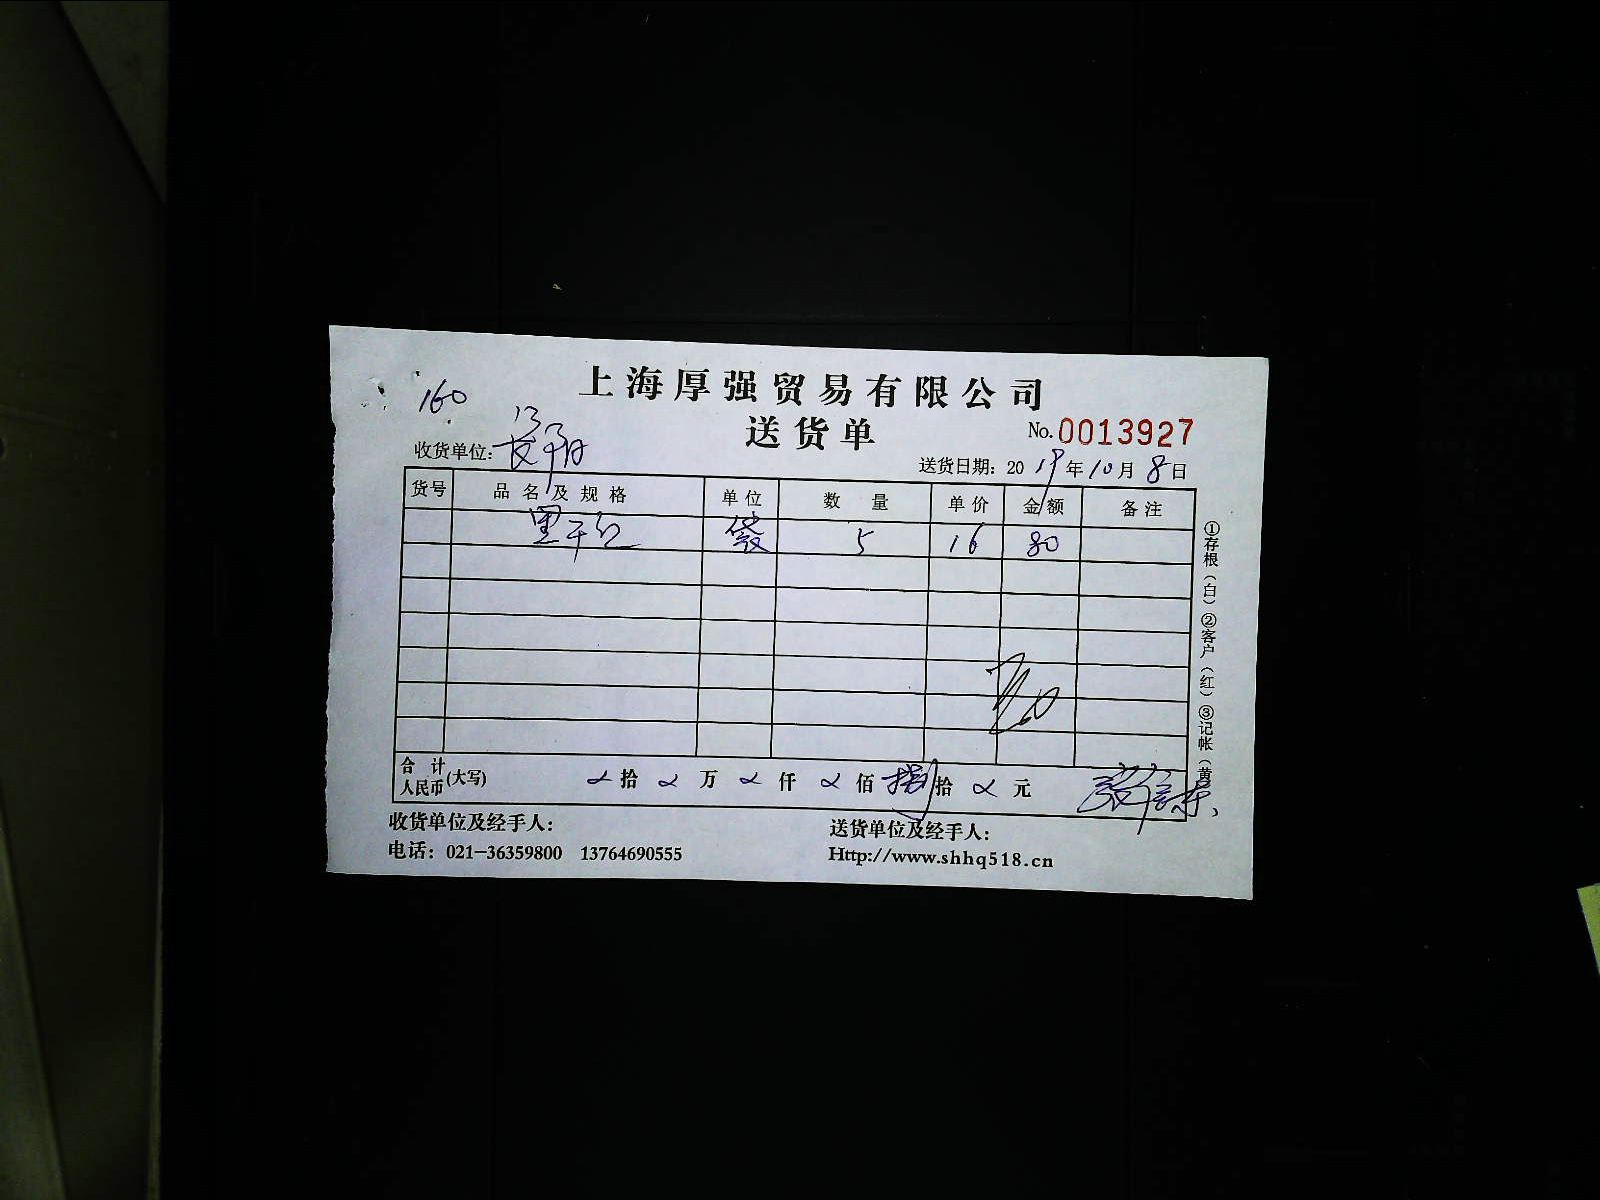 上海厚强贸易有限公司
160
送货单
No. 0013927
收货单位:
送货日期: 2019年10月8日
货号 品名及规格 单位 数量 单价 金额 备注
黑干红 袋 5 16 80
合计人民币(大写) 拾 万 仟 佰 捌拾 元
收货单位及经手人: 送货单位及经手人:
电话: 021-36359800 13764690555 Http://www.shhq518.cn
①存根(白)②客户(红)③记帐(黄